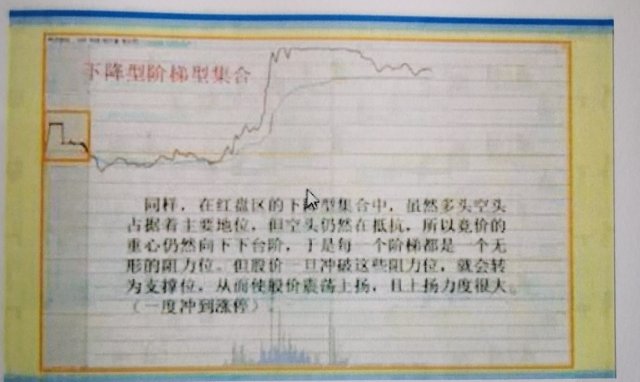 下降型阶梯型集合
同样，在红盘区的下降型集合中，虽然多头空头
占据着主要地位，但空头仍然在抵抗，所以竞价的
重心仍然向下下台阶，于是每一个阶梯都是一个无
形的阻力位。但股价一旦冲破这些阻力位，就会转
为支撑位，从而使股价震荡上扬，且上扬力度很大。
（一度冲到涨停）。